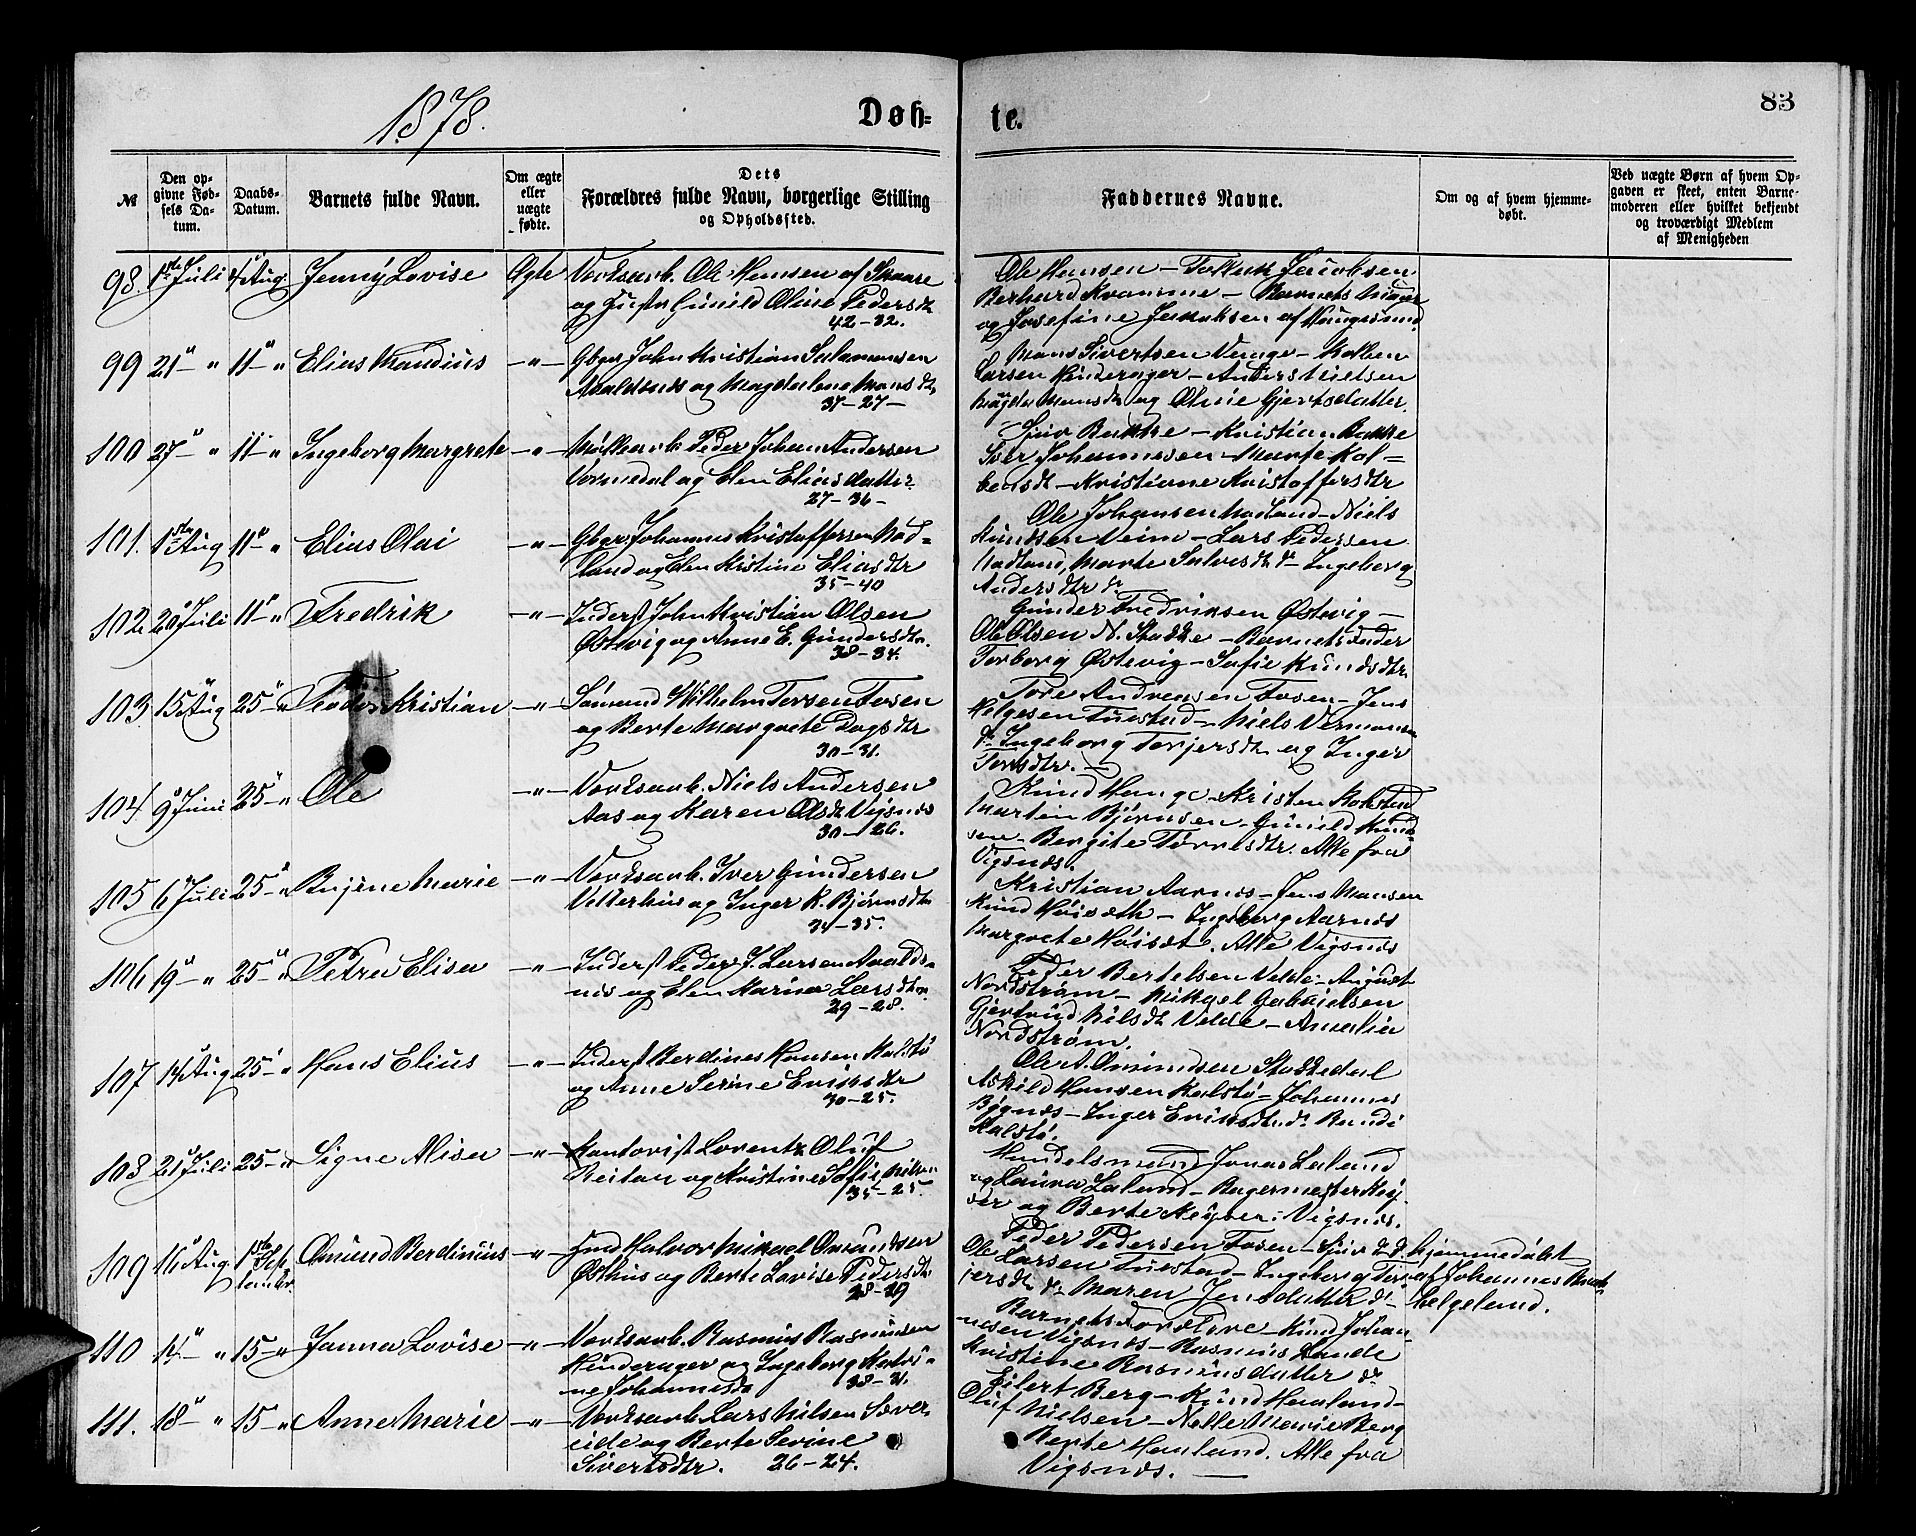 1878.
Døb-
te.
83
№
Den op-
givne Fød-
sels Da-
tum.
Daabs-
Datum.
Barnets fulde Navn.
Om ægte
eller
uægte
fødte.
Dets
Forældres fulde Navn, borgerlige Stilling
og Opholdssted.
Faddernes Navne.
Om og af hvem hjemme-
døbt.
Ved uægte Børn af hvem Op-
gaven er skeet, enten Barne-
moderen eller hvilket bekjendt
og troværdigt Medlem
af Menigheden
98. 1ste Juli 4 Aug Jenny Lovise Ægte Verksarb. Ole Hansen af Skaare
og Hustr Gunild Oline Pedersdtr
42-32.
Ole Hansen - Jacobsen
Berhard Kvamme - Barnets Moder
og Josefine Jakobsen af Haugesund
99 21 " 11 " Elias Maudius -"- Gbgr. John Kristian Salamonsen
og Magdalene Mons dtr
37-27-
Mons Sivertsen - Kolben
Larsen Hinderager - Anders Nielsen
Magda Monsdtr og Oline Gjertsdatter.
100 27 " 11 " Ingeborg Margrete -"- Peder Johan Andersen
Vormedal og Elen Eliasdatter
27-36-
Sjur Bakke - Kristian Bakke
Iver Johannesen - Marte Kol=
bensdtr - Kristianne Kristoffersdtr
101. 1ste Aug 11 " Elias Olai -"- Gbgr. Johannes Kristoffersen Vod=
land og Elen Kristine Eliasdtr
35-40
Ole Johansen Vadland - Niels
Knudsen Veim - Lars Pedersen
Vadland, Marte Salvesdtr do Ingeborg
Andersdtr do
102 20 Juli 11 " Fredrik -"- Inderst John Kristian Olsen
Østevig og Anne E. Gundersdtr.
38-34.
Gunder Fredriksen Østevig -
Ole Olsen N. Stakke - Barnets Fader
Torborg Østevig - Sofie Knudsdtr.
103 15 Aug 25 " Teodor Kristian -"- Sømand Wilhelm Torsen Fosen
og Berte Margrete Dagsdtr
30-31.
Tore Andreasen Fosen - Jens
Helgesen Tuestad - Niels
do Ingeborg Torjersdtr og Inger
Torsdtr. -
104. 9 Juni 25 " Ole -"- Verksarb. Niels Andersen
Aas og Karen Olsdtr Vigsnæs
30-26.
Knud Hauge - Kristen Kolstad
Martin Bjørnsen - Gunild Knud
sen - Bergite Tørresdtr. Alle fra
Vigsnæs.
105 6 Juli 25 " Bujine Marie -"- Verksarb. Iver Gundersen
Vetterhus og Inger K. Bjørnsdtr
34-35.
Kristian Aarnes - Jens Hansen
Knud Høiseth - Ingeborg Aarnes
Margrete Høiset. Alle Vigsnæs
106 19 " " 25 " Petra Elisa -"- Inderst Peder J. Larsen Avalds-
nes og Elen Marina Larsdtr
29-28.
Peder Bertelsen Velde - August
Nordstrøm - Mikael Gabrielsen
Gjertrud Nilsdtr Velde - Amalia
Nordstrøm.
107 14 Aug 25 " Hans Elius -"- Inderst Berdines Hansen Kalstø
og Anne Serine Eriksdtr
30-25.
Ole A. Omundsen Stakkedal
Askild Hansen Kalstø - Johannes
Bøgnæs - Inger Eriksdtr do
Kalstø.
108 21 Juli 25 " Signe Alisa -"- Kontorist Lorentz Oluf
Reitan og Kristine Sofie
35-25.
Handelsmand Jonas Laland
og Laura Laland - Bagermester Key
ser og Berte Keyser: Vigsnæs.
109 16 Aug. 1ste Sep
tembr. Omund Berdinius -"- Halvor Mikael Omundsen
Østhus og Berte Lovise Pedersdtr
28-29
Peder Pedersen Fosen - Sjur do
Ole Larsen Tuestad - Ingeborg Tor
jersdtr do Maren Jensdatter do -
hjemmedøbt
af Johannes
helgeland.
110 14 " " 15 " Janna Lovise -"- Verksarb. Rasmus Rasmussen
Hinderager og Ingeborg Katri-
ne Johannesdtr 38-31.
Barnets Forældre - Knud Johan-
nesen Vigsnæs - Rasmus Sande
Kristine Rasmusdatter do
111. 18 " " 15 " Anne Marie -"- Verksarb. Lars Nilsen Sæver
eide og Berte Serine
Sivertsdtr. 26-24.
Eilert Berg - Knud Haaland -
Oluf Nielsen - Nelle Marie Berg
Berte Haaland. Alle fra
Vigsnæs. -